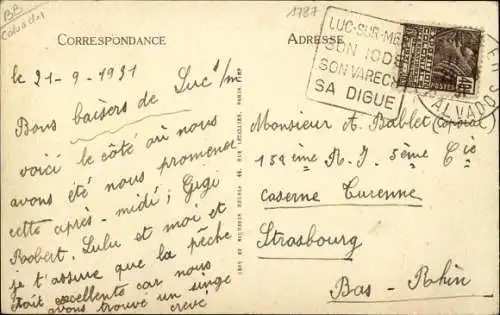 BB
Calvados
1787
CORRESPONDANCE
ADRESSE
LUC-SUR-MER
SON IODE
SON VARECH
SA DIGUE
CALVADOS
le 21-9-1931
Bons baisers de Luc s/m
voici le côté où nous
avons été nous promener
cette après-midi; Gigi
Robert. Lulu et moi et
je t'assure que la pêche
était excellente car nous
avons trouvé un singe
crevé
Monsieur A. Bablet (Caporal)
158ème R.I. 5ème Cie
Caserne Turenne
Strasbourg
Bas-Rhin